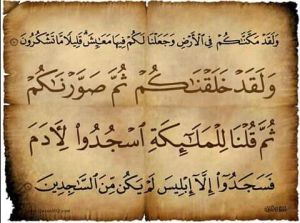 وَلَقَدْ مَكَّنَّـٰكُمْ فِي ٱلْأَرْضِ وَجَعَلْنَا لَكُمْ فِيهَا مَعَـٰيِشَ ۗ قَلِيلًا مَّا تَشْكُرُونَ
وَلَقَدْ خَلَقْنَـٰكُمْ ثُمَّ صَوَّرْنَـٰكُمْ
ثُمَّ قُلْنَا لِلْمَلَـٰٓئِكَةِ ٱسْجُدُوا۟ لِـَٔادَمَ
فَسَجَدُوٓا۟ إِلَّآ إِبْلِيسَ لَمْ يَكُن مِّنَ ٱلسَّـٰجِدِينَ